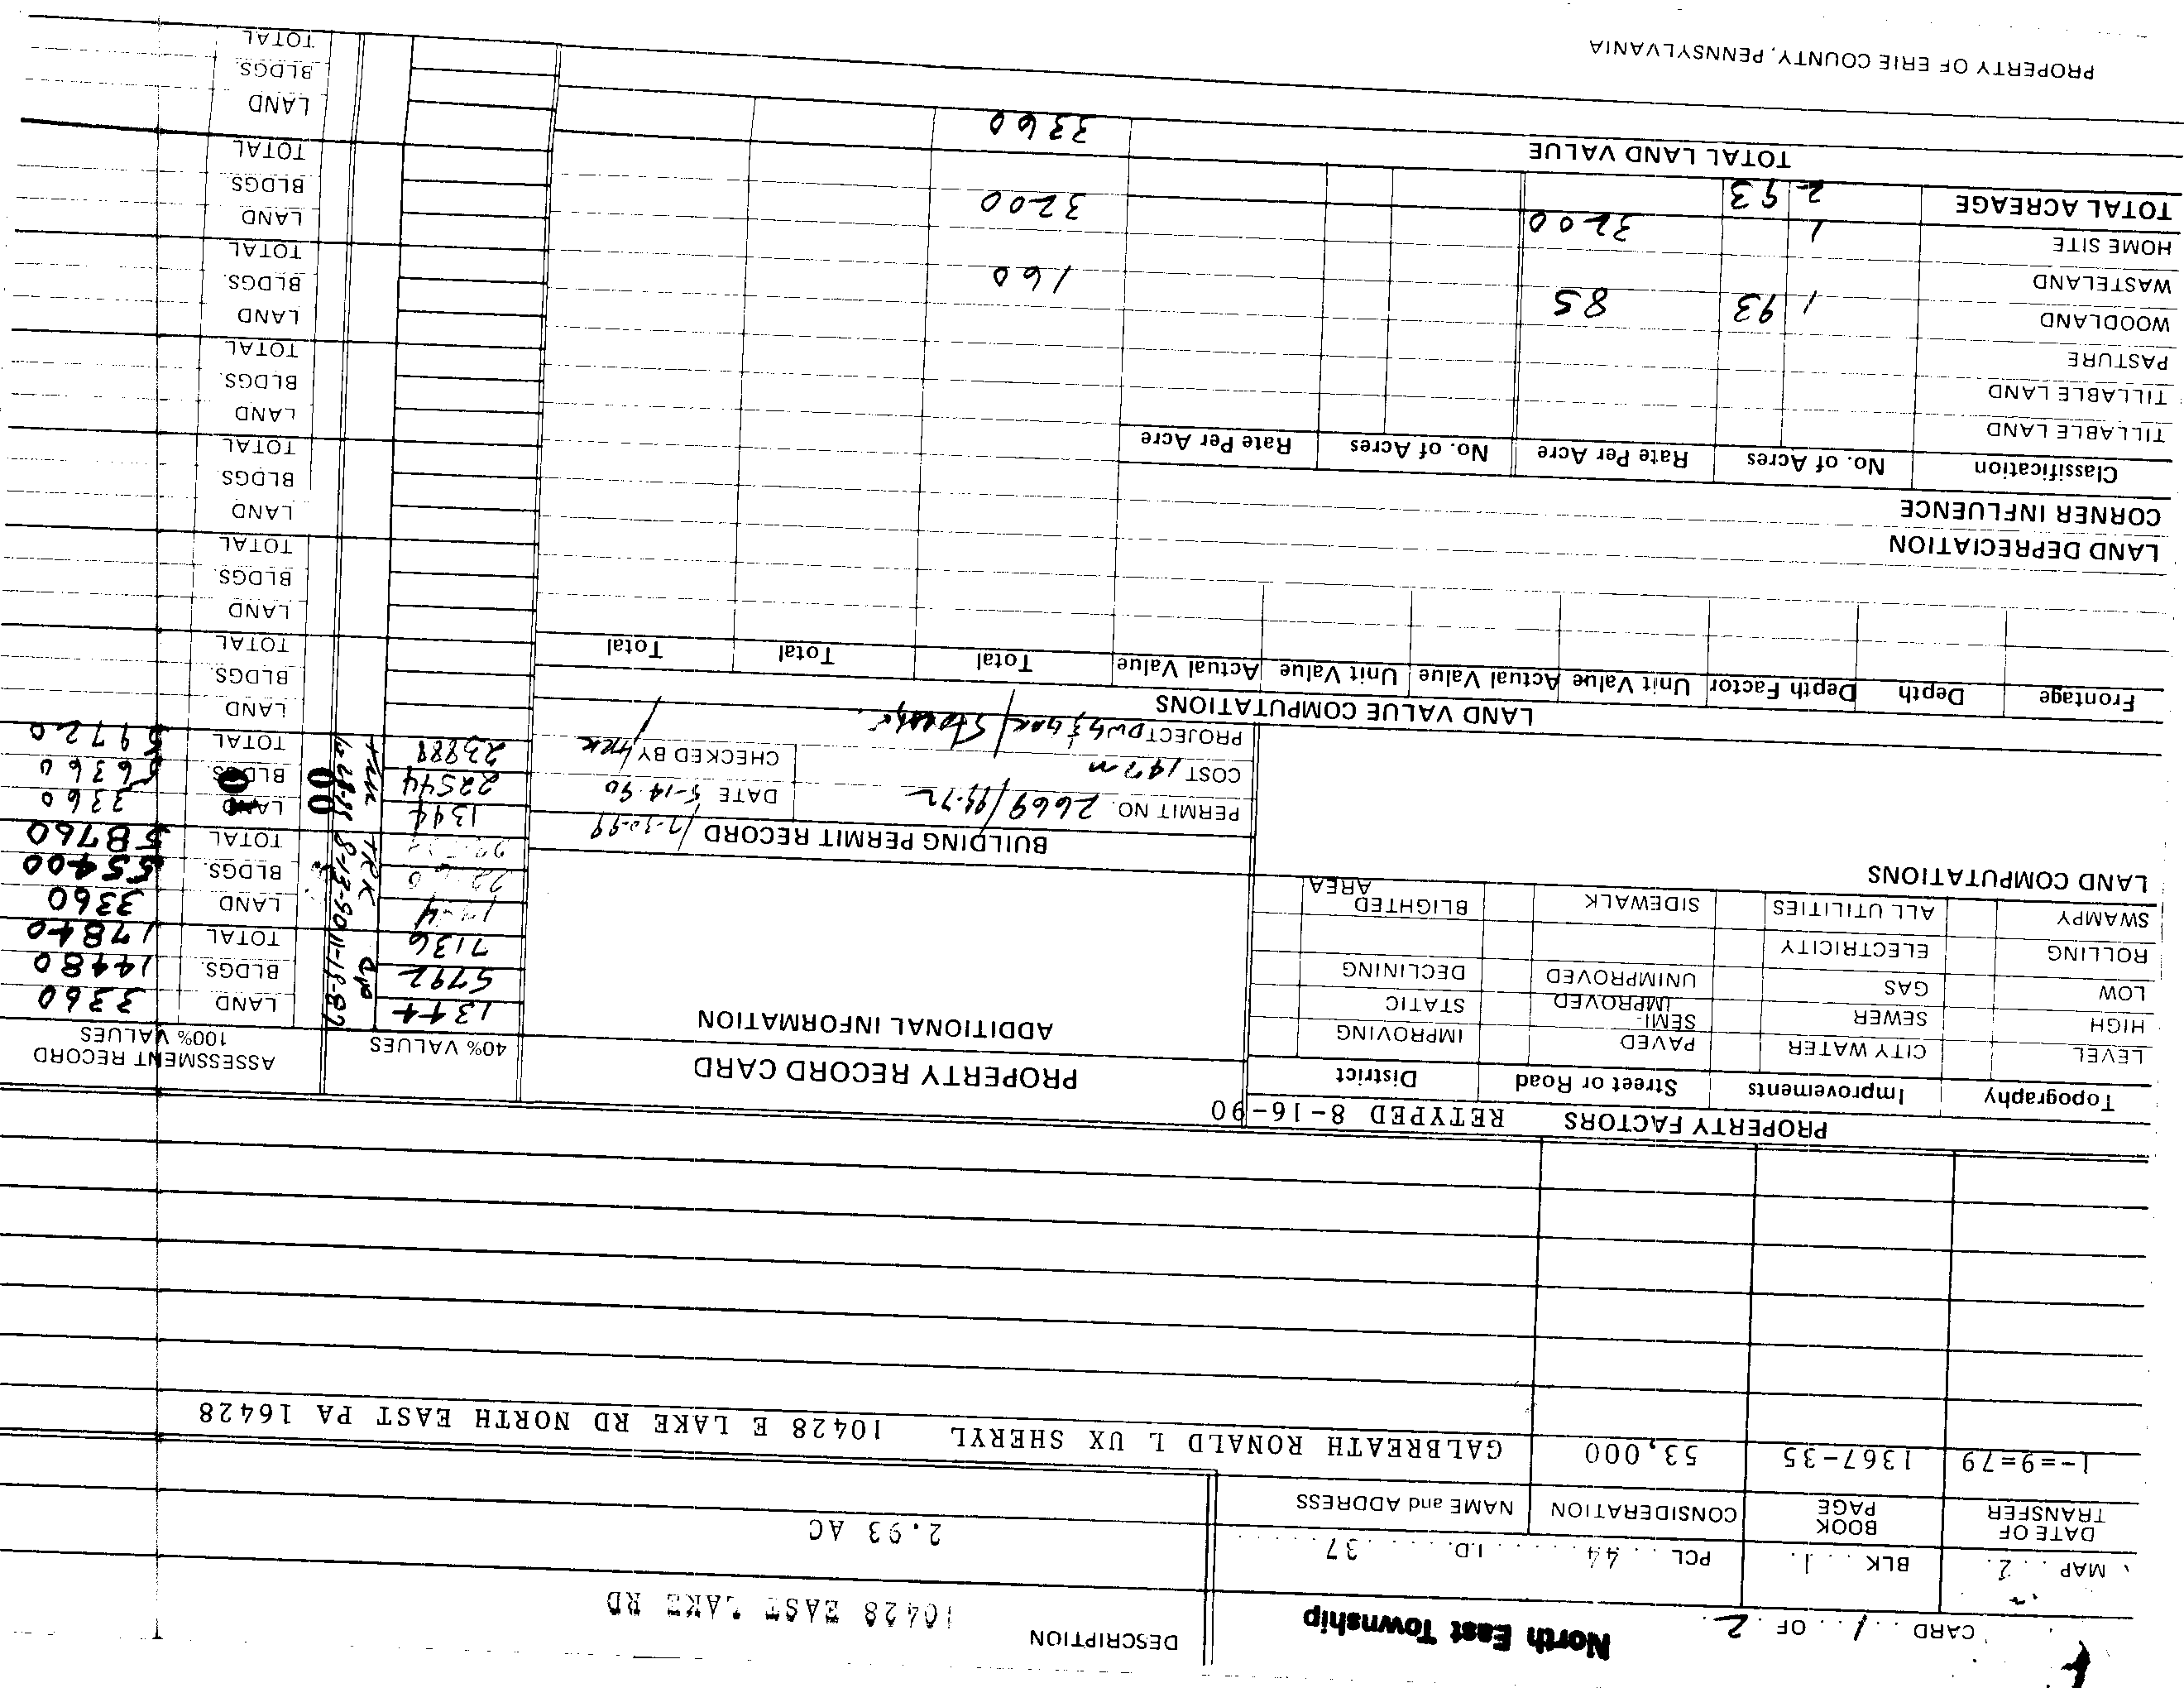 CARD 1 OF 2
North East Township
DESCRIPTION
10428 EAST LAKE RD
MAP 2. BLK 1. PCL 44 I.D. 37
2.93 AC
DATE OF TRANSFER BOOK PAGE CONSIDERATION NAME and ADDRESS
1-=9=79 1367-35 53,000 GALBREATH RONALD L UX SHERYL 10428 E LAKE RD NORTH EAST PA 16428
PROPERTY FACTORS RETYPED 8-16-90
Topography Improvements Street or Road District
LEVEL CITY WATER PAVED IMPROVING
HIGH SEWER SEMI-IMPROVED STATIC
LOW GAS UNIMPROVED DECLINING
ROLLING ELECTRICITY
SWAMPY ALL UTILITIES SIDEWALK BLIGHTED AREA
LAND COMPUTATIONS
PROPERTY RECORD CARD
ADDITIONAL INFORMATION
BUILDING PERMIT RECORD
PERMIT NO. 2669/99-72 DATE 5-14-90
COST CHECKED BY
PROJECT
40% VALUES
ASSESSMENT RECORD
100% VALUES
1344 11-18-87 LAND 3360
5792 BLDGS. 14480
7136 TOTAL 17840
8-13-90 TRK LAND 3360
BLDGS. 55400
TOTAL 58760
1344 00 LAND 3360
22544 BLDGS. 56360
23888 TOTAL 59720
LAND
BLDGS.
TOTAL
LAND
BLDGS
TOTAL
LAND
BLDGS
TOTAL
LAND
BLDGS.
TOTAL
LAND
BLDGS.
TOTAL
LAND
BLDGS
TOTAL
LAND
BLDGS.
TOTAL
LAND VALUE COMPUTATIONS
Frontage Depth Depth Factor Unit Value Actual Value Unit Value Actual Value Total Total Total
LAND DEPRECIATION
CORNER INFLUENCE
Classification No. of Acres Rate Per Acre No. of Acres Rate Per Acre
TILLABLE LAND
TILLABLE LAND
PASTURE
WOODLAND 1 93 85 160
WASTELAND
HOME SITE 1 3200 3200
TOTAL ACREAGE 2 93
TOTAL LAND VALUE 3360
PROPERTY OF ERIE COUNTY, PENNSYLVANIA